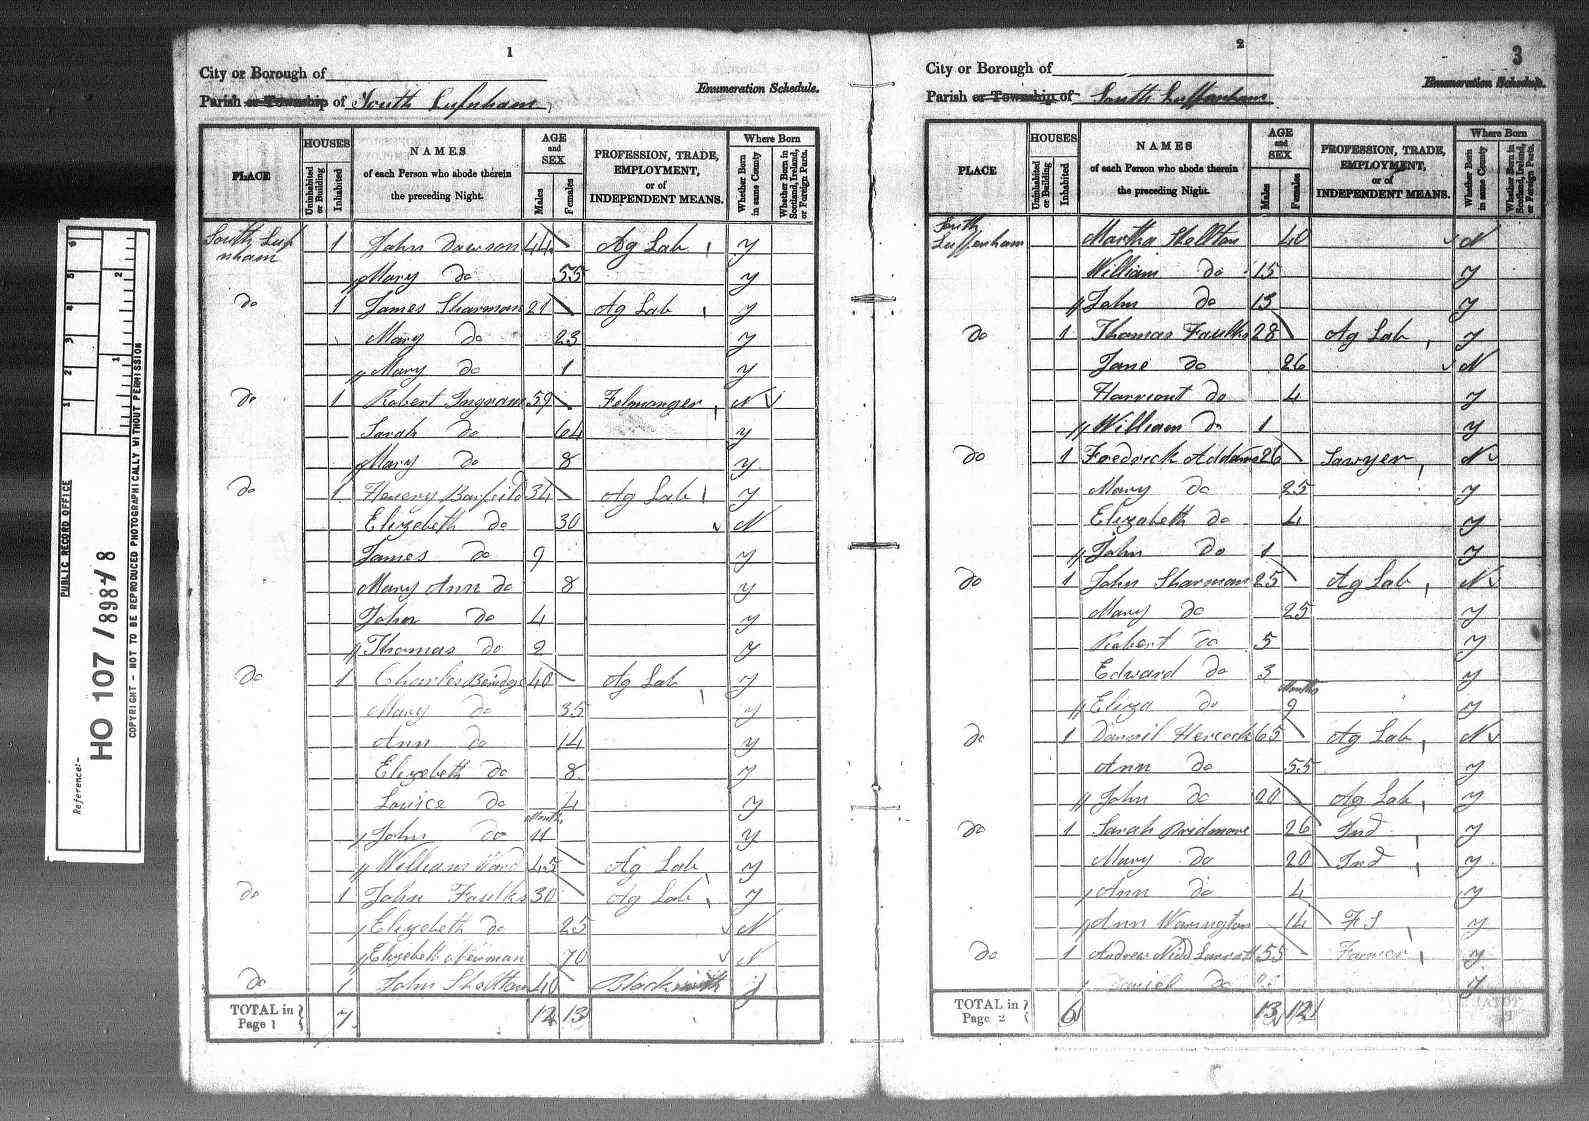 1
City or Borough of
Enumeration Schedule.
Parish or Township of South Lufnham
PLACE
HOUSES
Uninhabited or Building
Inhabited
NAMES
of each Person who abode therein the preceding Night.
AGE and SEX
Males
Females
PROFESSION, TRADE, EMPLOYMENT, or of INDEPENDENT MEANS.
Where Born
Whether Born in same County
Whether Born in Scotland, Ireland, or Foreign Parts.
South Luf nham 1 John Dawson 44 Ag Lab y
Mary do 55 y
do 1 James Sharman 21 Ag Lab y
Mary do 23 y
Mary do 1 y
do 1 Robert Ingram 59 Felmonger N
Sarah do 64 y
Mary do 8 y
do 1 34 Ag Lab y
Elizebeth do 30 N
James do 9 y
Mary Ann do 8 y
John do 4 y
Thomas do 2 y
do 1 Charles 40 Ag Lab y
Mary do 35 y
Ann do 14 y
Elizebeth do 8 y
Louice do 4 y
John do Months 11 y
William Ward 45 Ag Lab y
do 1 John Faulks 30 Ag Lab y
Elizebeth do 25 N
Elizebeth Newman 70 N
do 1 John Shelton 40 Blacksmith y
TOTAL in Page 1 7 12 13
2
3
City or Borough of
Enumeration Schedule.
Parish or Township of South Luffenham
PLACE
HOUSES
Uninhabited or Building
Inhabited
NAMES
of each Person who abode therein the preceding Night.
AGE and SEX
Males
Females
PROFESSION, TRADE, EMPLOYMENT, or of INDEPENDENT MEANS.
Where Born
Whether Born in same County
Whether Born in Scotland, Ireland, or Foreign Parts.
South Luffenham Martha Shelton 40 N
William do 15 y
John do 13 y
do 1 Thomas Faulks 28 Ag Lab y
Jane do 26 N
Harriout do 4 y
William do 1 y
do 1 Fredrick Addams 26 Sawyer N
Mary do 25 y
Elizabeth do 4 y
John do 1 y
do 1 John Sharman 25 Ag Lab N
Mary do 25 y
Robert do 5 y
Edward do 3 y
Eliza do Months 9 y
do 1 Hercock 65 Ag Lab N
Ann do 55 y
John do 20 Ag Lab y
do 1 Sarah Pridmore 26 Ind y
Mary do 20 Ind y
Ann do 4 y
Ann Warington 14 FS y
do 1 Andrew Nidd 55 Farmer y
Daniel do y
TOTAL in Page 2 6 13 12
Reference:-
HO 107/898-8
PUBLIC RECORD OFFICE
COPYRIGHT - NOT TO BE REPRODUCED PHOTOGRAPHICALLY WITHOUT PERMISSION
1 2 3 4 5 6
1 2